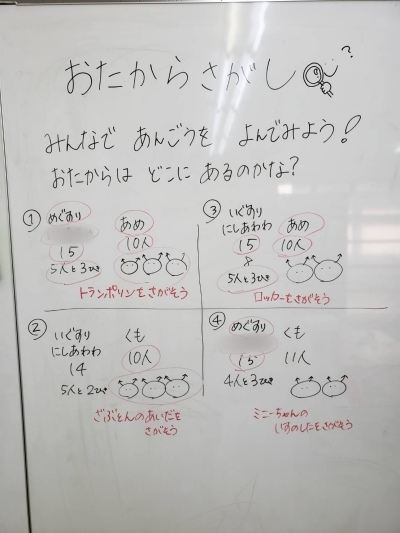 おたからさがし
?
みんなで あんごうを よんでみよう!
おたからは どこに あるのかな?
① めぐすり
あめ
15
10人
5人と3ひき
トランポリンをさがそう
② いぐすり
くも
にしあわわ
14
10人
5人と2ひき
ざぶとんのあいだを
さがそう
③ いぐすり
にしあわわ
あめ
15
10人
8
5人と3ひき
ロッカーをさがそう
④ めぐすり
くも
15
11人
4人と3ひき
ミニーちゃんの
いすのしたをさがそう